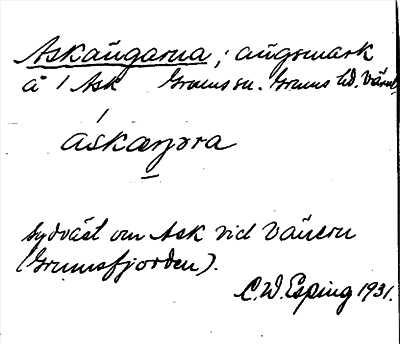 Askängarna; ängsmark
å 1 Ask Grums sn. Grums hd. Värml.
áskæŋəra
sydväst om Ask vid Vänern
(Grumsfjorden).
C.W. Esping 1931.